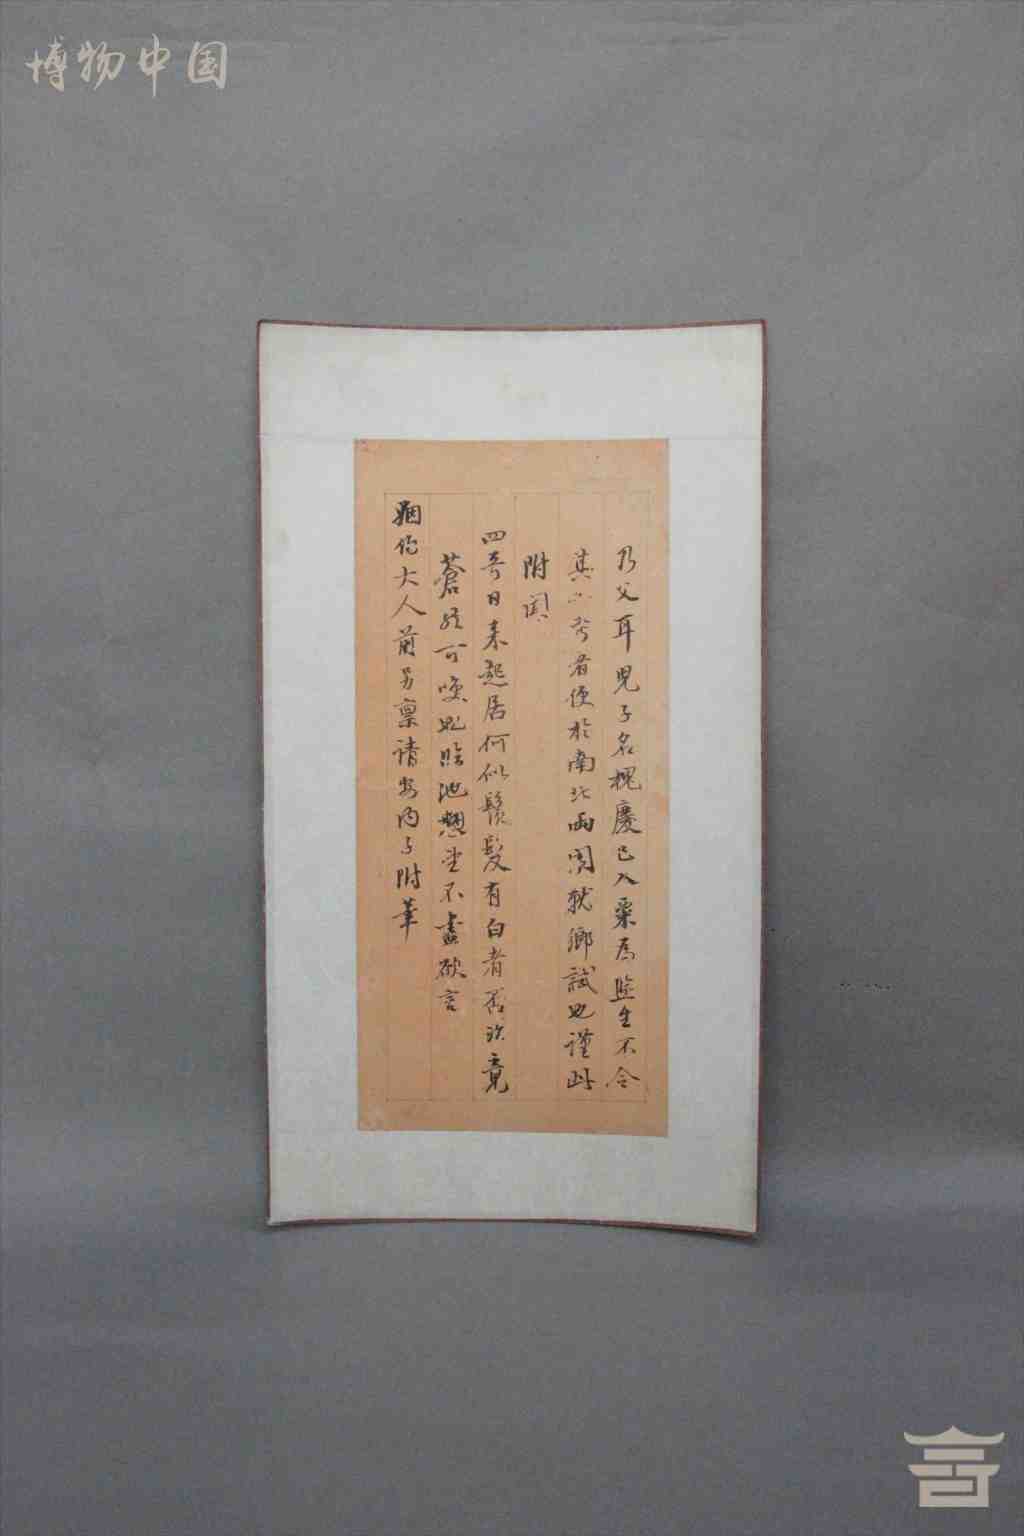 博物中国
乃父耳兒子名槐慶已入粟為監生不令
其小考者便於南北兩闈就鄉試也謹此
附聞
四哥日來起居何似鬚髮有白者否玖竟
蒼然可嘆也臨池想望不盡欲言
姻伯大人前另稟請安內子附筆